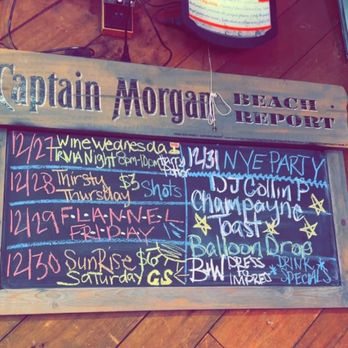 Captain Morgan BEACH REPORT
12/27 Wine Wednesda
TRIVIA Night 8pm-10pm
12/28 Thirsty $3 Shots
Thursday
12/29 F-L-A-N-N-E-L
F-R-I-D-A-Y
12/30 SunRise $6
Saturday GS
12/31 NYE PARTY
DJ Collin P
Champagne
Toast
Balloon Drop
B+W DRESS TO IMPRESS
DRINK SPECIALS